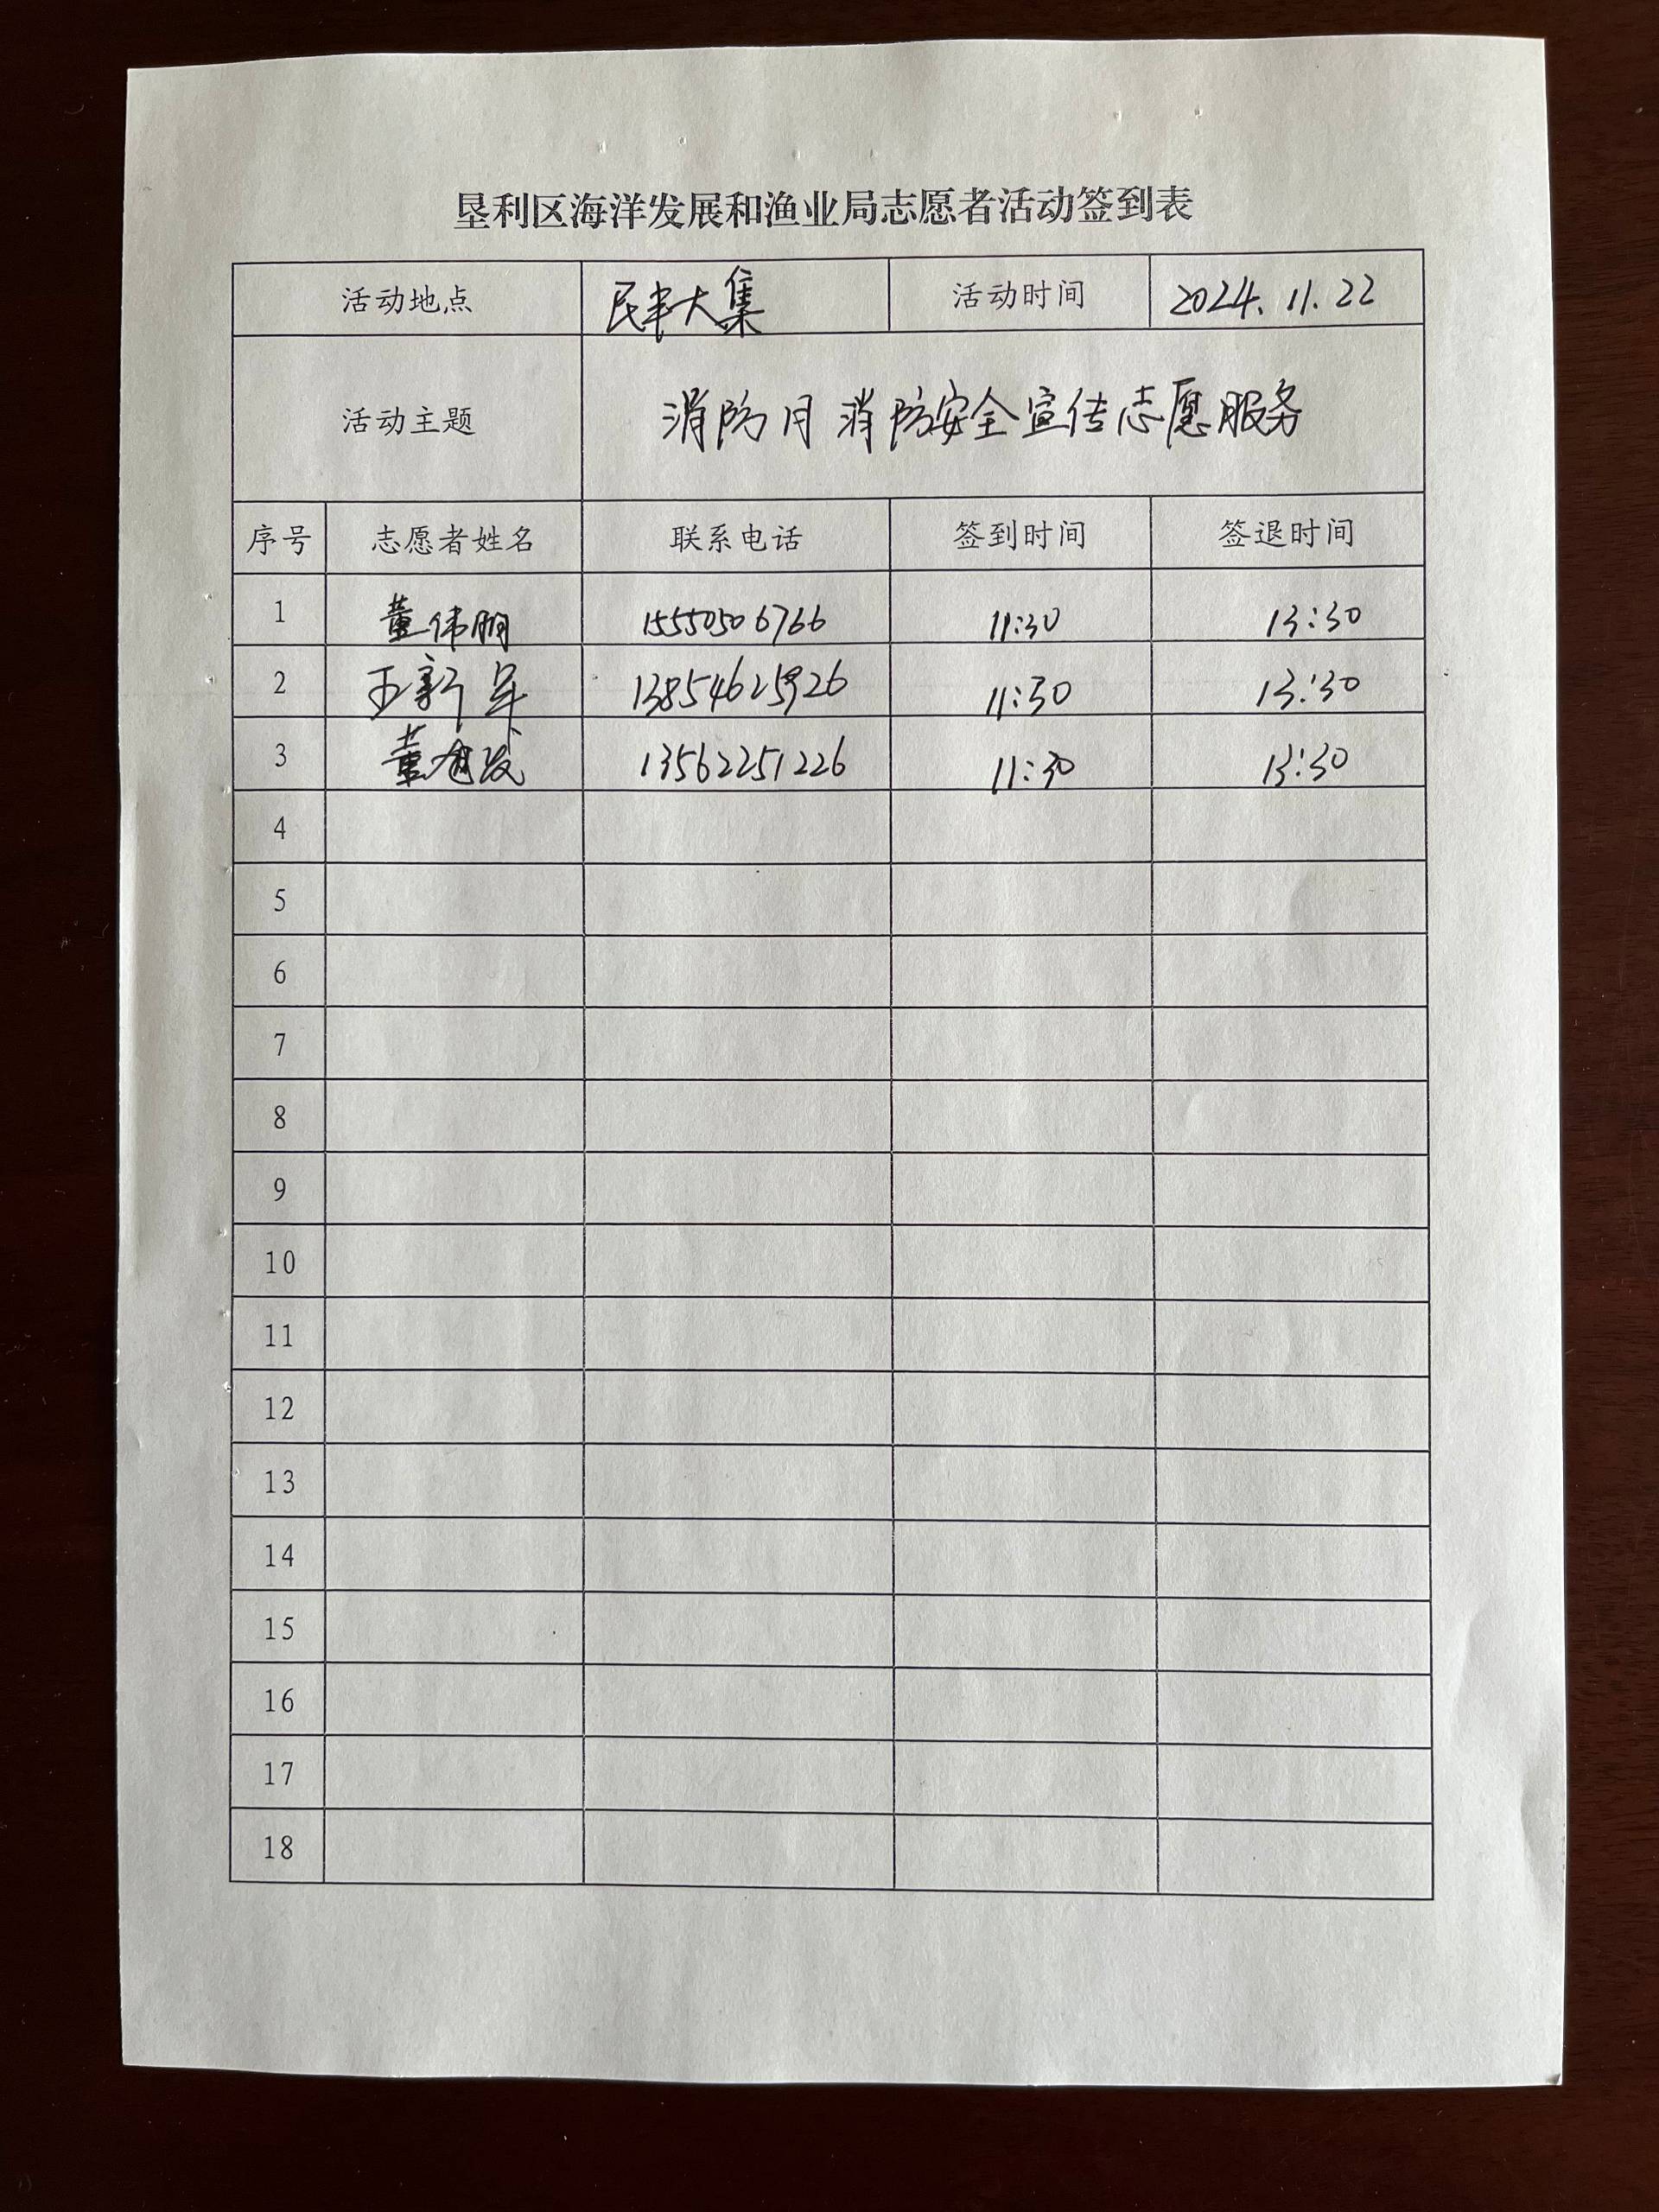 垦利区海洋发展和渔业局志愿者活动签到表
活动地点 民丰大集 活动时间 2024.11.22
活动主题 消防月消防安全宣传志愿服务
序号 志愿者姓名 联系电话 签到时间 签退时间
1 董伟朋 15550506766 11:30 13:30
2 王新军 13854625926 11:30 13:30
3 董 13562251226 11:30 13:30
4
5
6
7
8
9
10
11
12
13
14
15
16
17
18